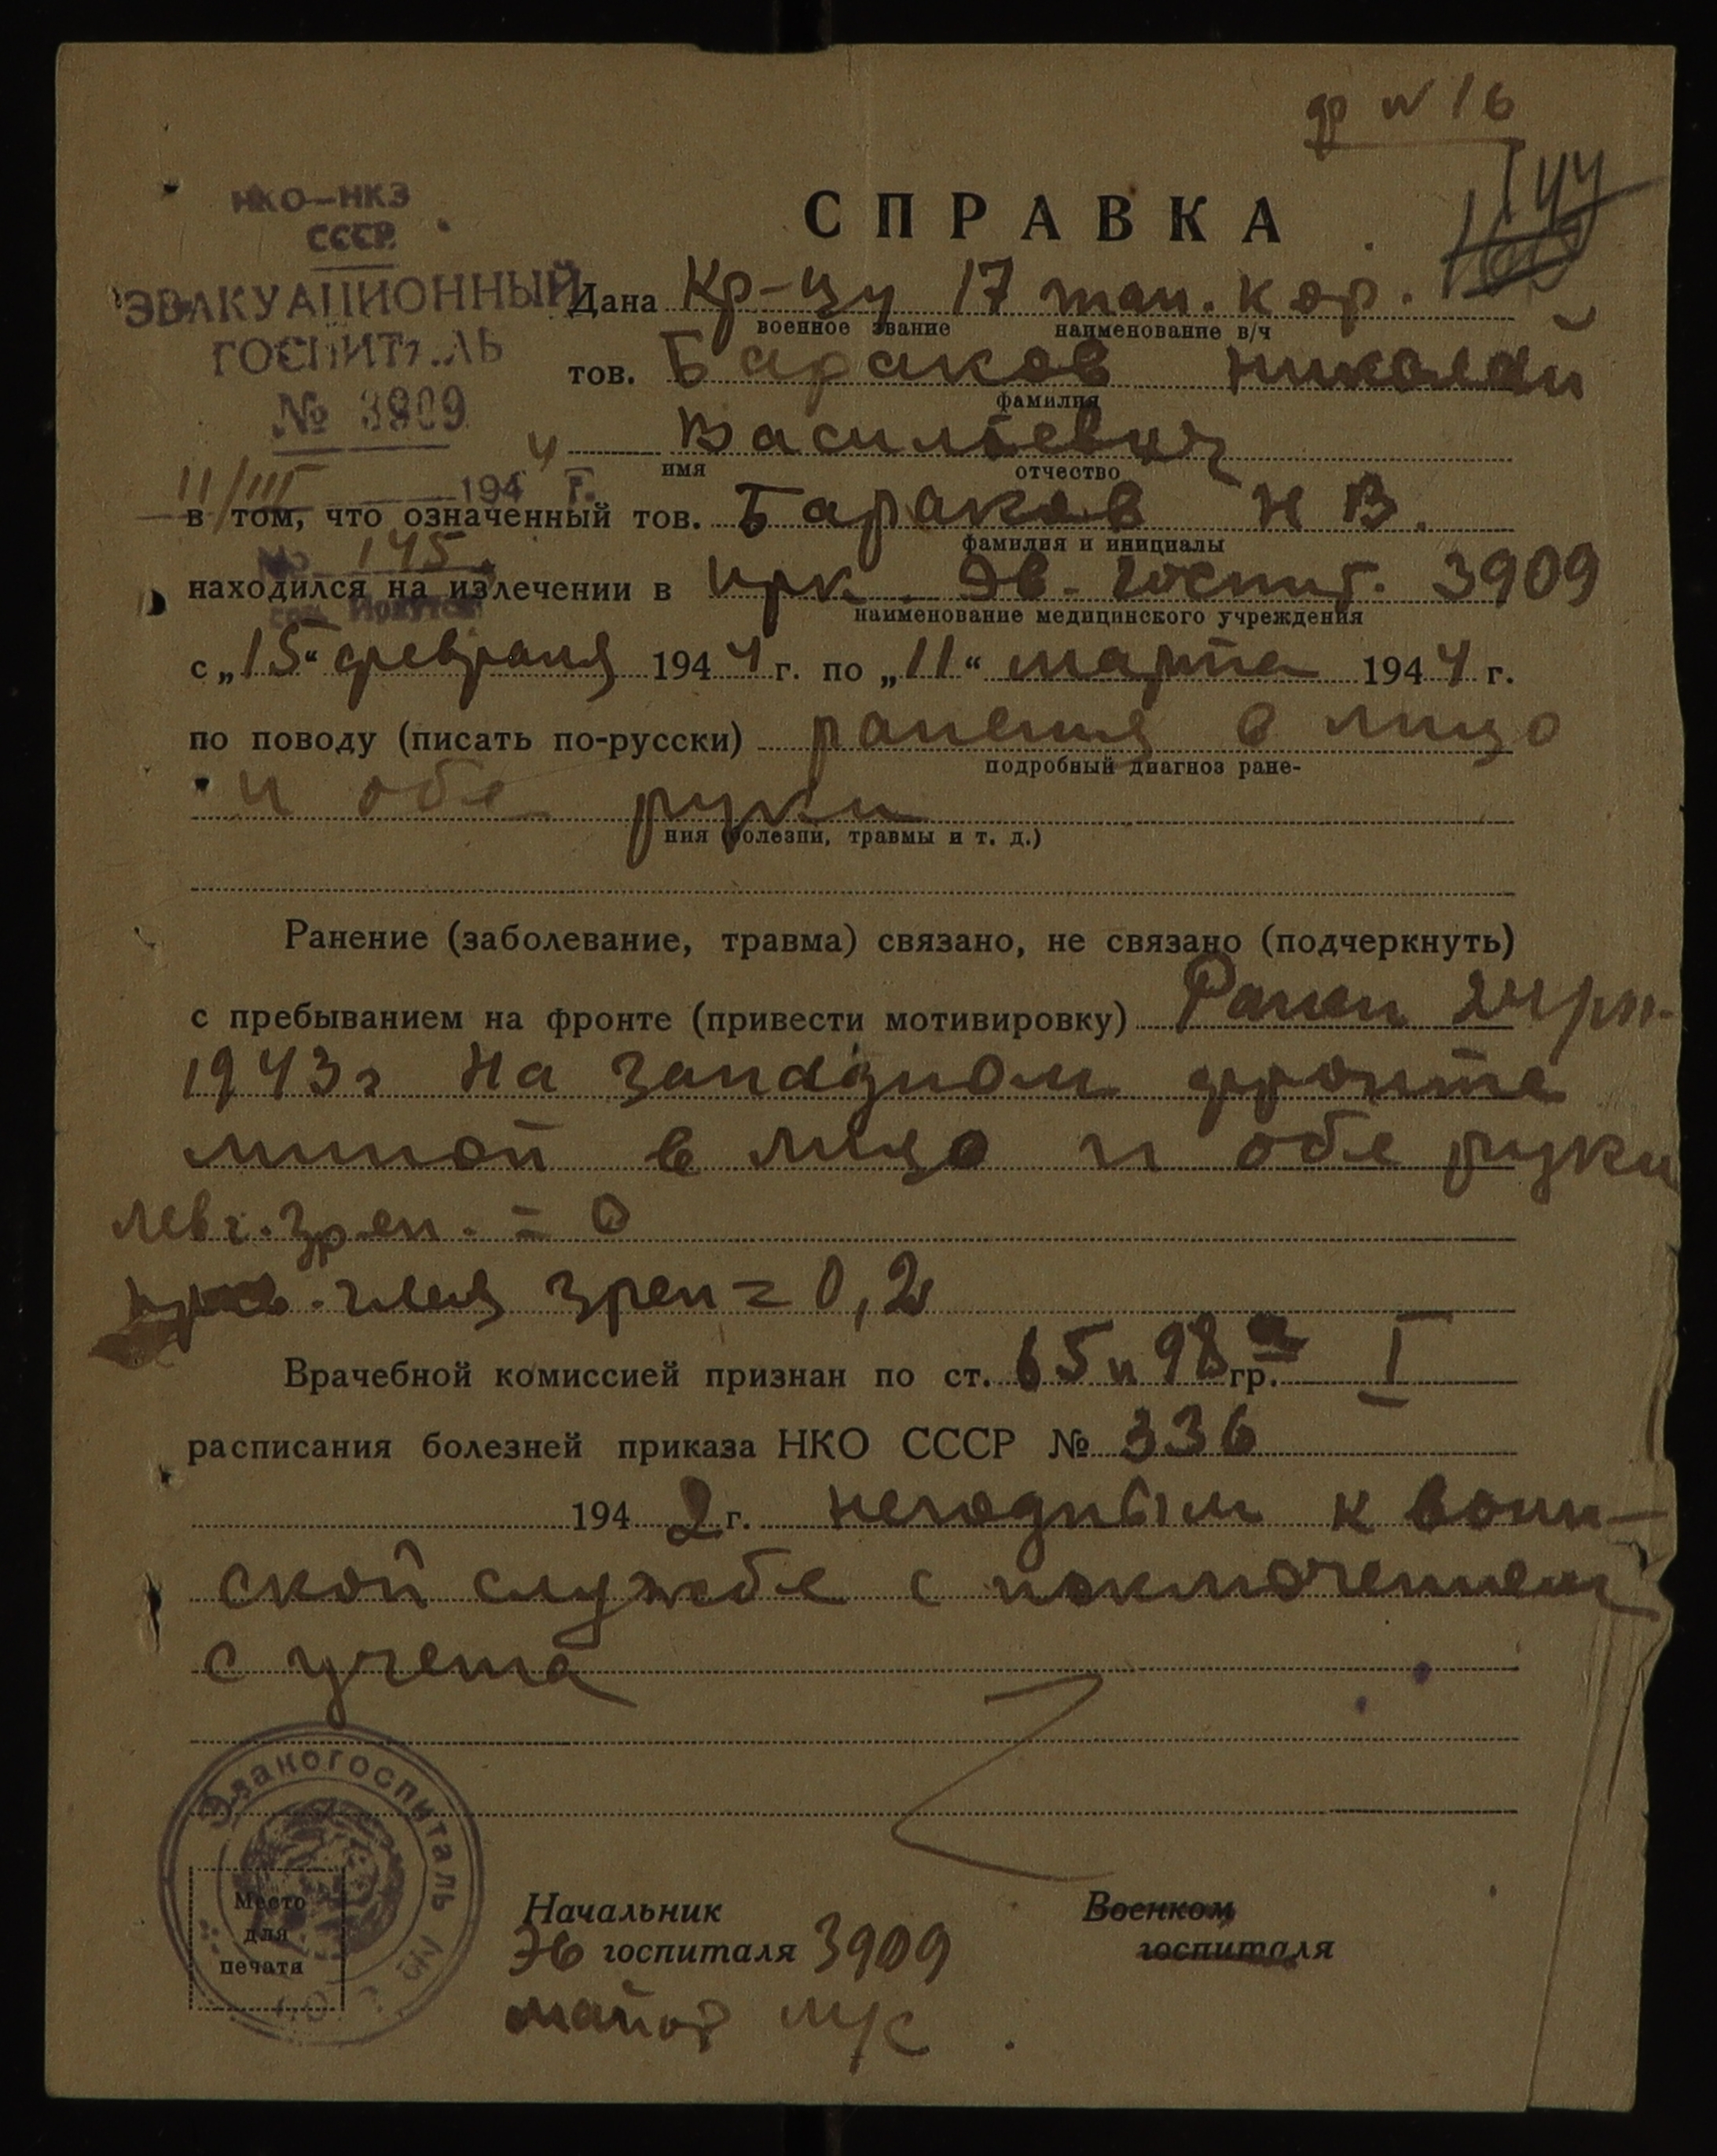 ф №16
144
НКО—НКЗ
СССР
ЭВАКУАЦИОННЫЙ
ГОСПИТАЛЬ
№ 3909
11/III 1944 г.
№ 145
гор. Иркутск
СПРАВКА
Дана Кр-цу 17 тан. кор.
военное звание наименование в/ч
тов. Бараков Николай
фамилия
Васильевич
имя отчество
в том, что означенный тов. Бараков Н В.
фамилия и инициалы
находился на излечении в Ирк. Эв. Госпит. 3909
наименование медицинского учреждения
с „15“ февраля 1944 г. по „11“ марта 1944 г.
по поводу (писать по-русски) ранения в лицо
подробный диагноз ране-
и обе руки
ния (болезни, травмы и т. д.)
Ранение (заболевание, травма) связано, не связано (подчеркнуть)
с пребыванием на фронте (привести мотивировку) Ранен
1943г На западном фронте
миной в лицо и обе руки
лев г. зрен. = 0
прав. глаз зрен = 0,2
Врачебной комиссией признан по ст. 65 и 98 гр. I
расписания болезней приказа НКО СССР № 336
1942 г. негодным к воин-
ской службе с исключением
с учета
Эвакогоспиталь
Место
для
печати
Начальник
Эв госпиталя 3909
майор м/с
Военком
госпиталя